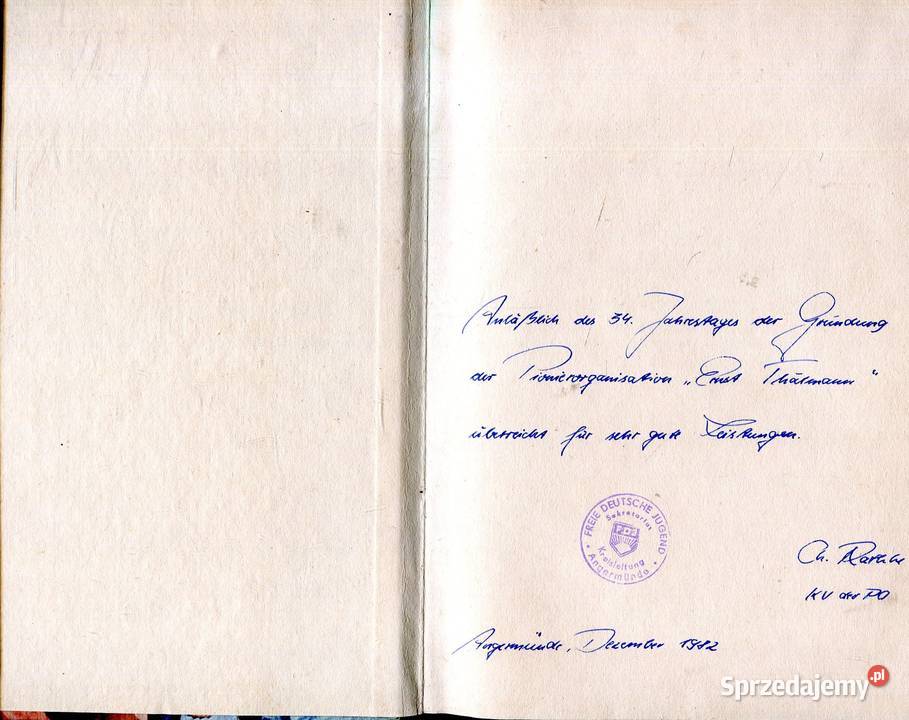 Anläßlich des 34. Jahrestages der Gründung
der Pionierorganisation „Ernst Thälmann"
überreicht für sehr gute Leistungen.
FREIE DEUTSCHE JUGEND
Sekretariat
FDJ
Kreisleitung
Angermünde
Ch.
KV der PO
Angermünde, Dezember 1982
Sprzedajemy.pl